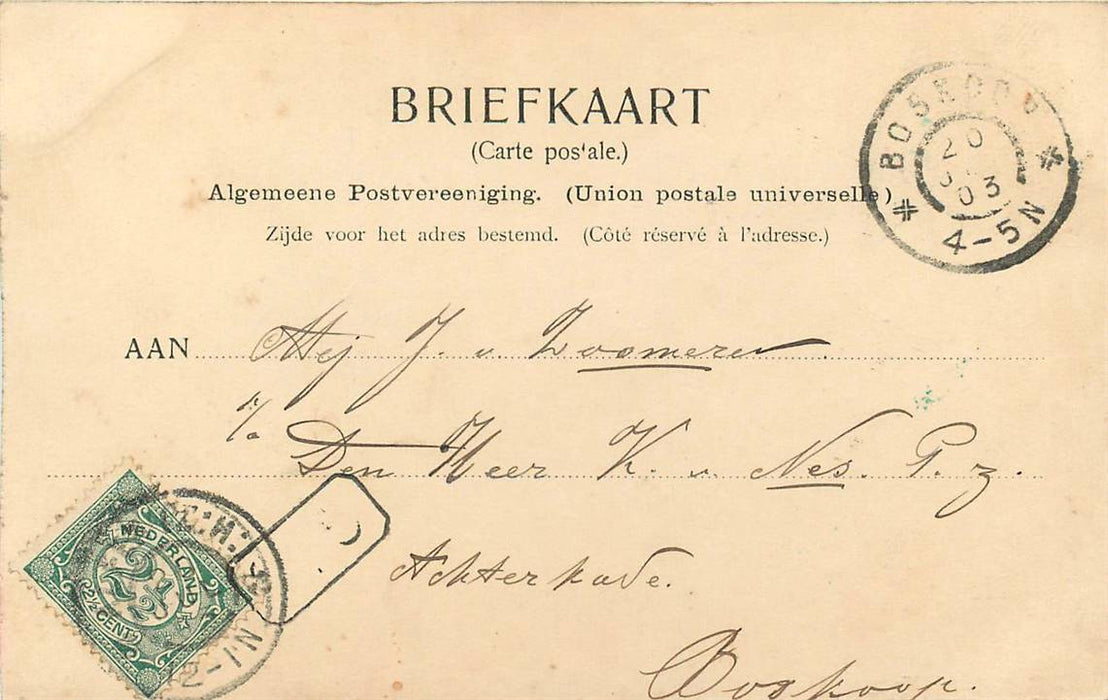 BRIEFKAART
(Carte pos'ale.)
Algemeene Postvereeniging. (Union postale universelle)
Zijde voor het adres bestemd. (Côté réservé à l'adresse.)
BOSKOOP
20
03
4-5N
AAN Mej J. v. Zoomeren
c/o Den Heer K. v. Nes. P.z.
Achterkade.
Boskoop.
NEDERLAND
2½
2½ CENT